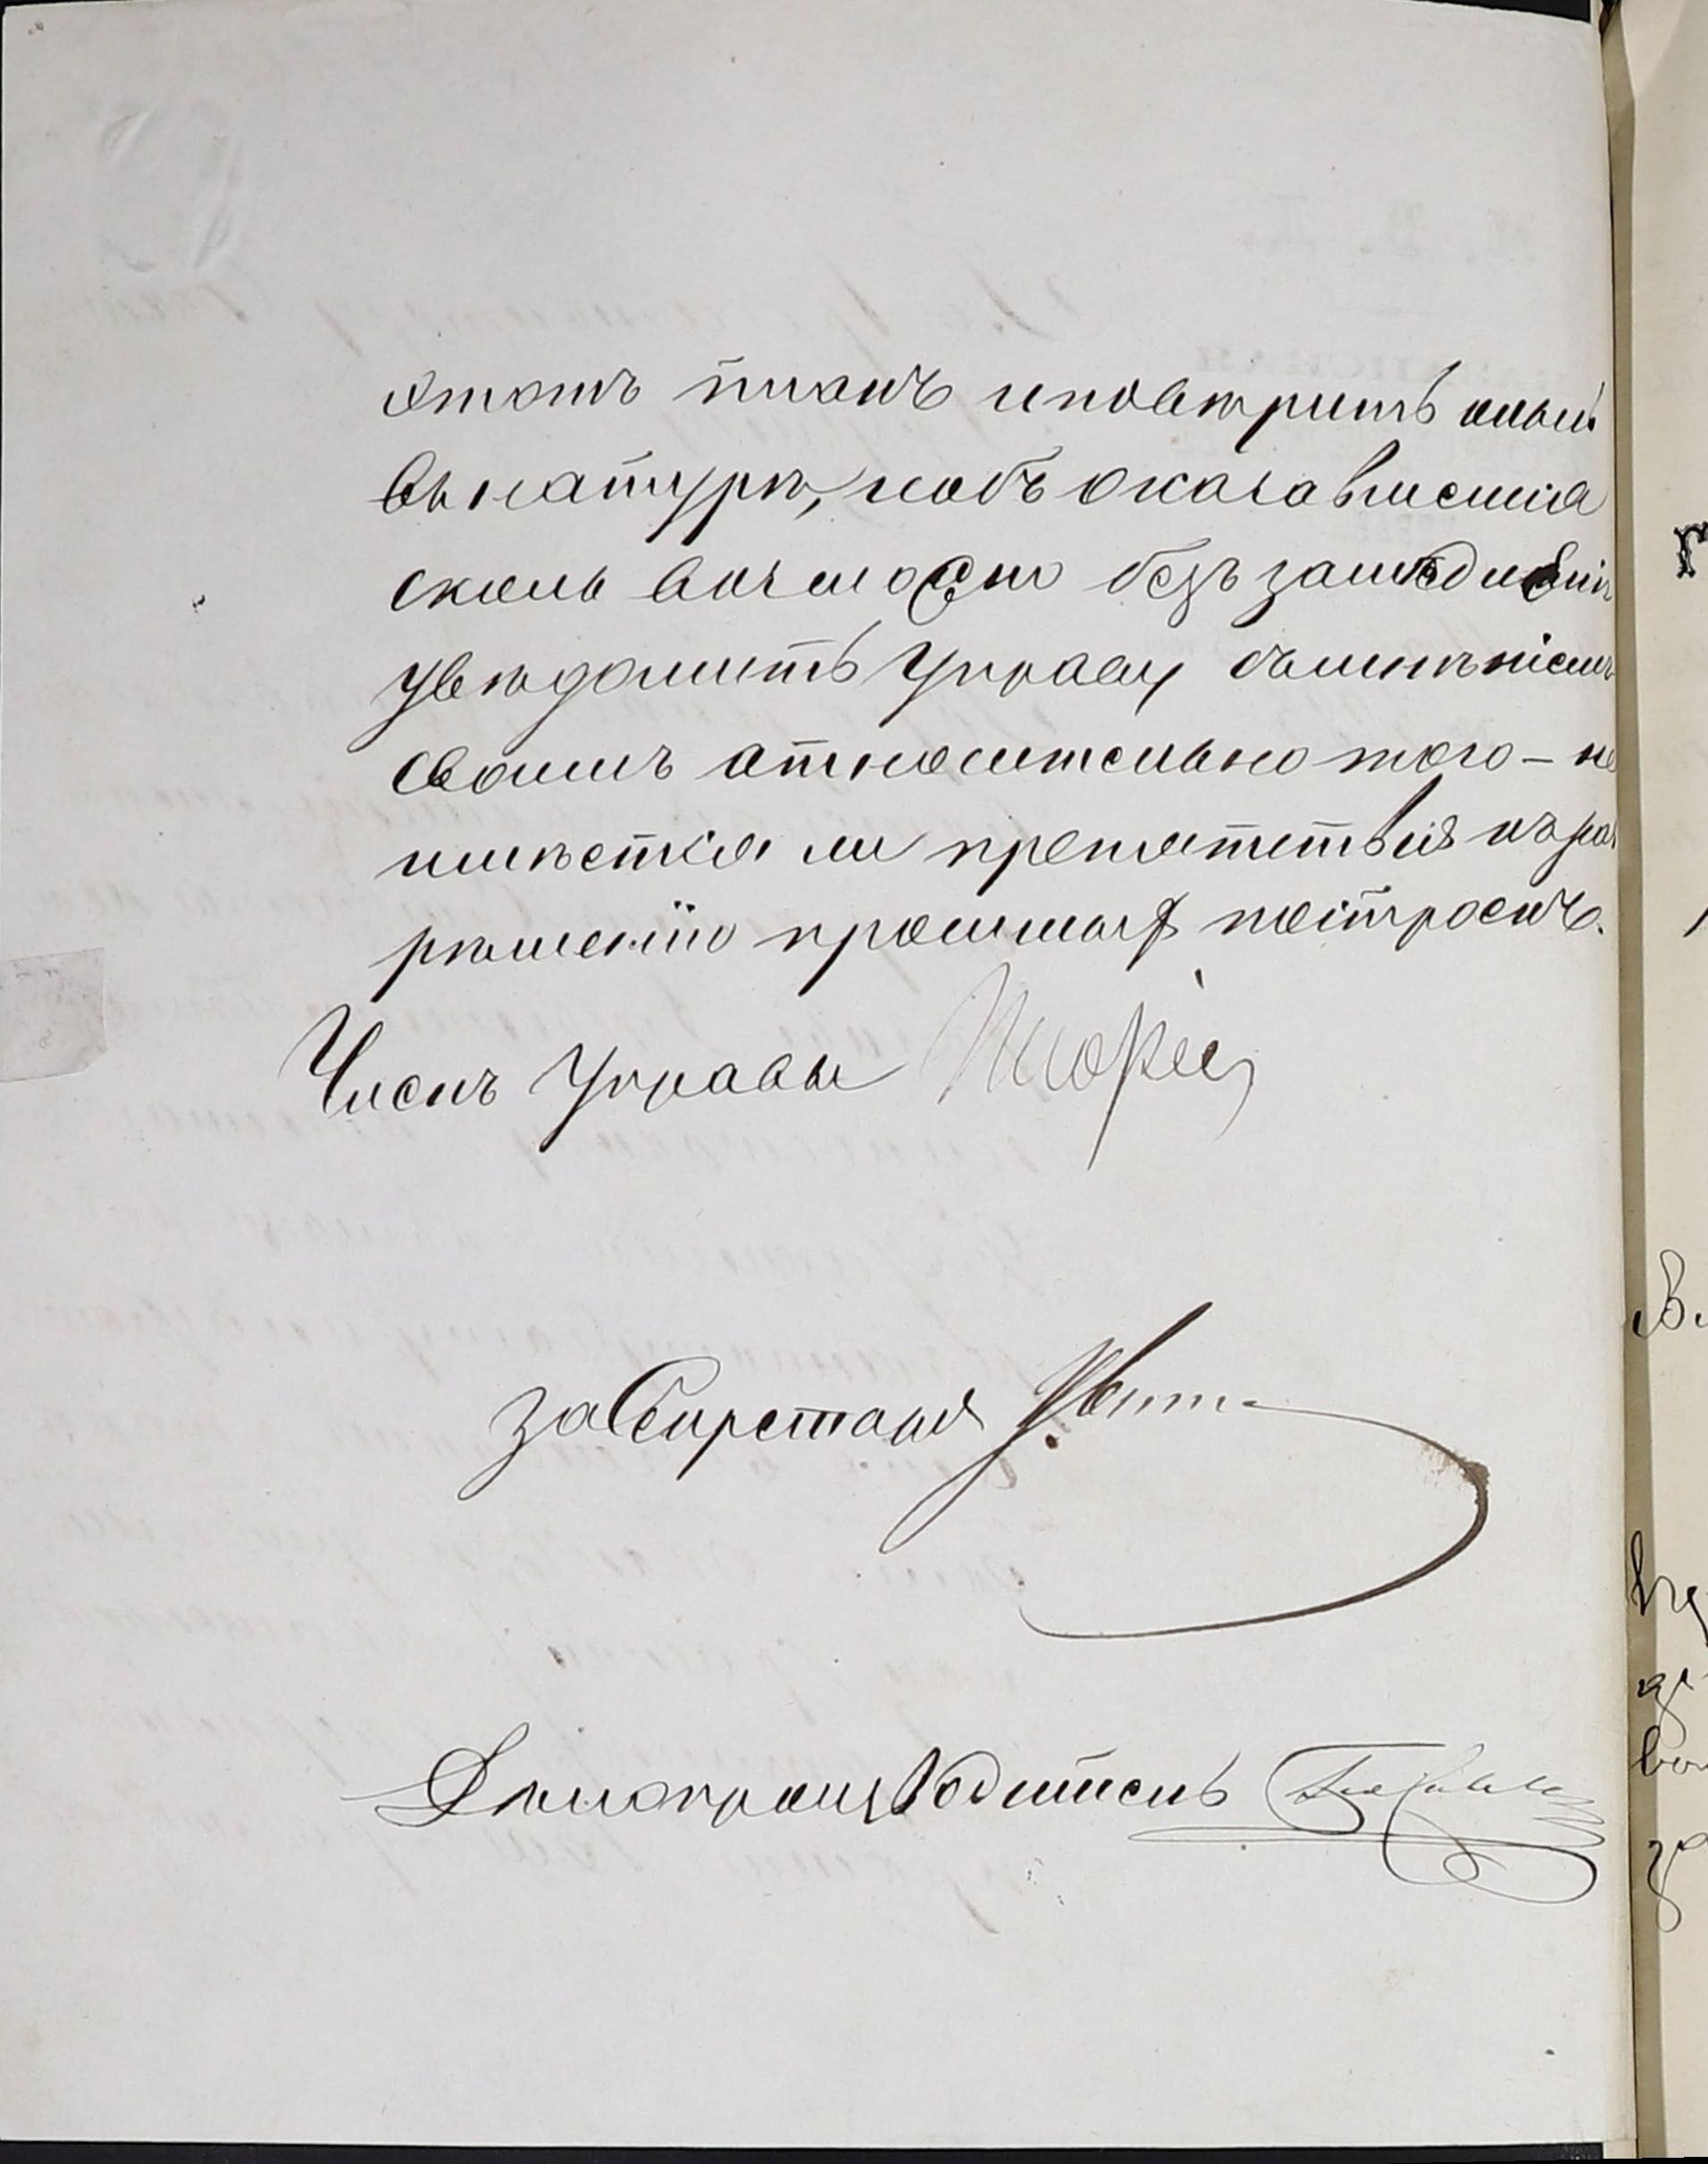 этотъ планъ и повѣрить оный
въ натурѣ, и объ оказавшемся
сколь возможно безъ замедленія
увѣдомить Управу съ мнѣніемъ
своимъ относительно того – не
имѣется ли препятствія къ раз
рѣшенію просимыхъ построекъ.
Членъ Управы
За Секретаря
Дѣлопроизводитель